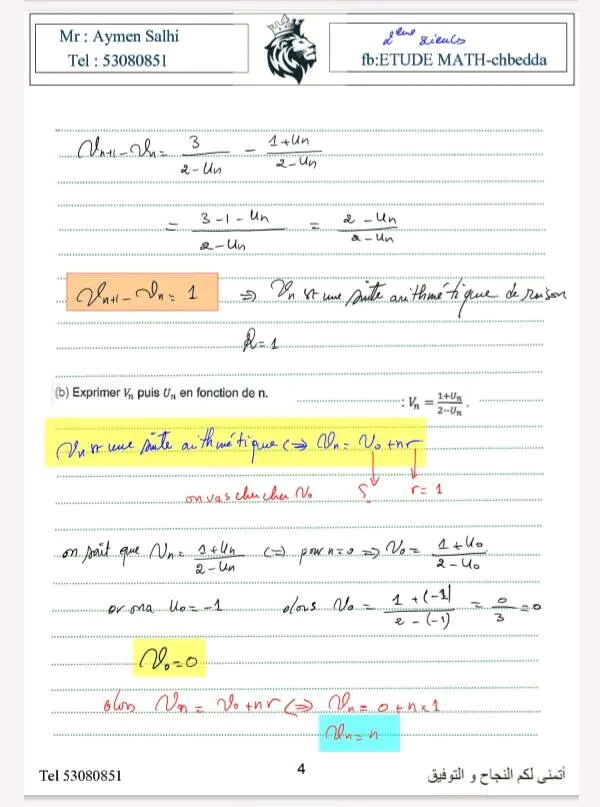 Mr : Aymen Salhi
Tel : 53080851
2ème Sciences
fb:ETUDE MATH-chbedda
Vn+1 - Vn = 3/(2 - Un) - (1 + Un)/(2 - Un)
= (3 - 1 - Un)/(2 - Un) = (2 - Un)/(2 - Un)
Vn+1 - Vn = 1 ⇒ Vn est une suite arithmétique de raison
R = 1
(b) Exprimer Vn puis Un en fonction de n. : Vn = (1+Un)/(2-Un) .
Vn est une suite arithmétique ⇔ Vn = V0 + nr
on vas chercher V0 ? r = 1
on sait que Vn = (1 + Un)/(2 - Un) ⇔ pour n = 0 ⇒ V0 = (1 + U0)/(2 - U0)
or on a U0 = -1 alors V0 = (1 + (-1))/(2 - (-1)) = 0/3 = 0
V0 = 0
alors Vn = V0 + nr ⇔ Vn = 0 + n × 1
Vn = n
Tel 53080851
4
أتمنى لكم النجاح و التوفيق